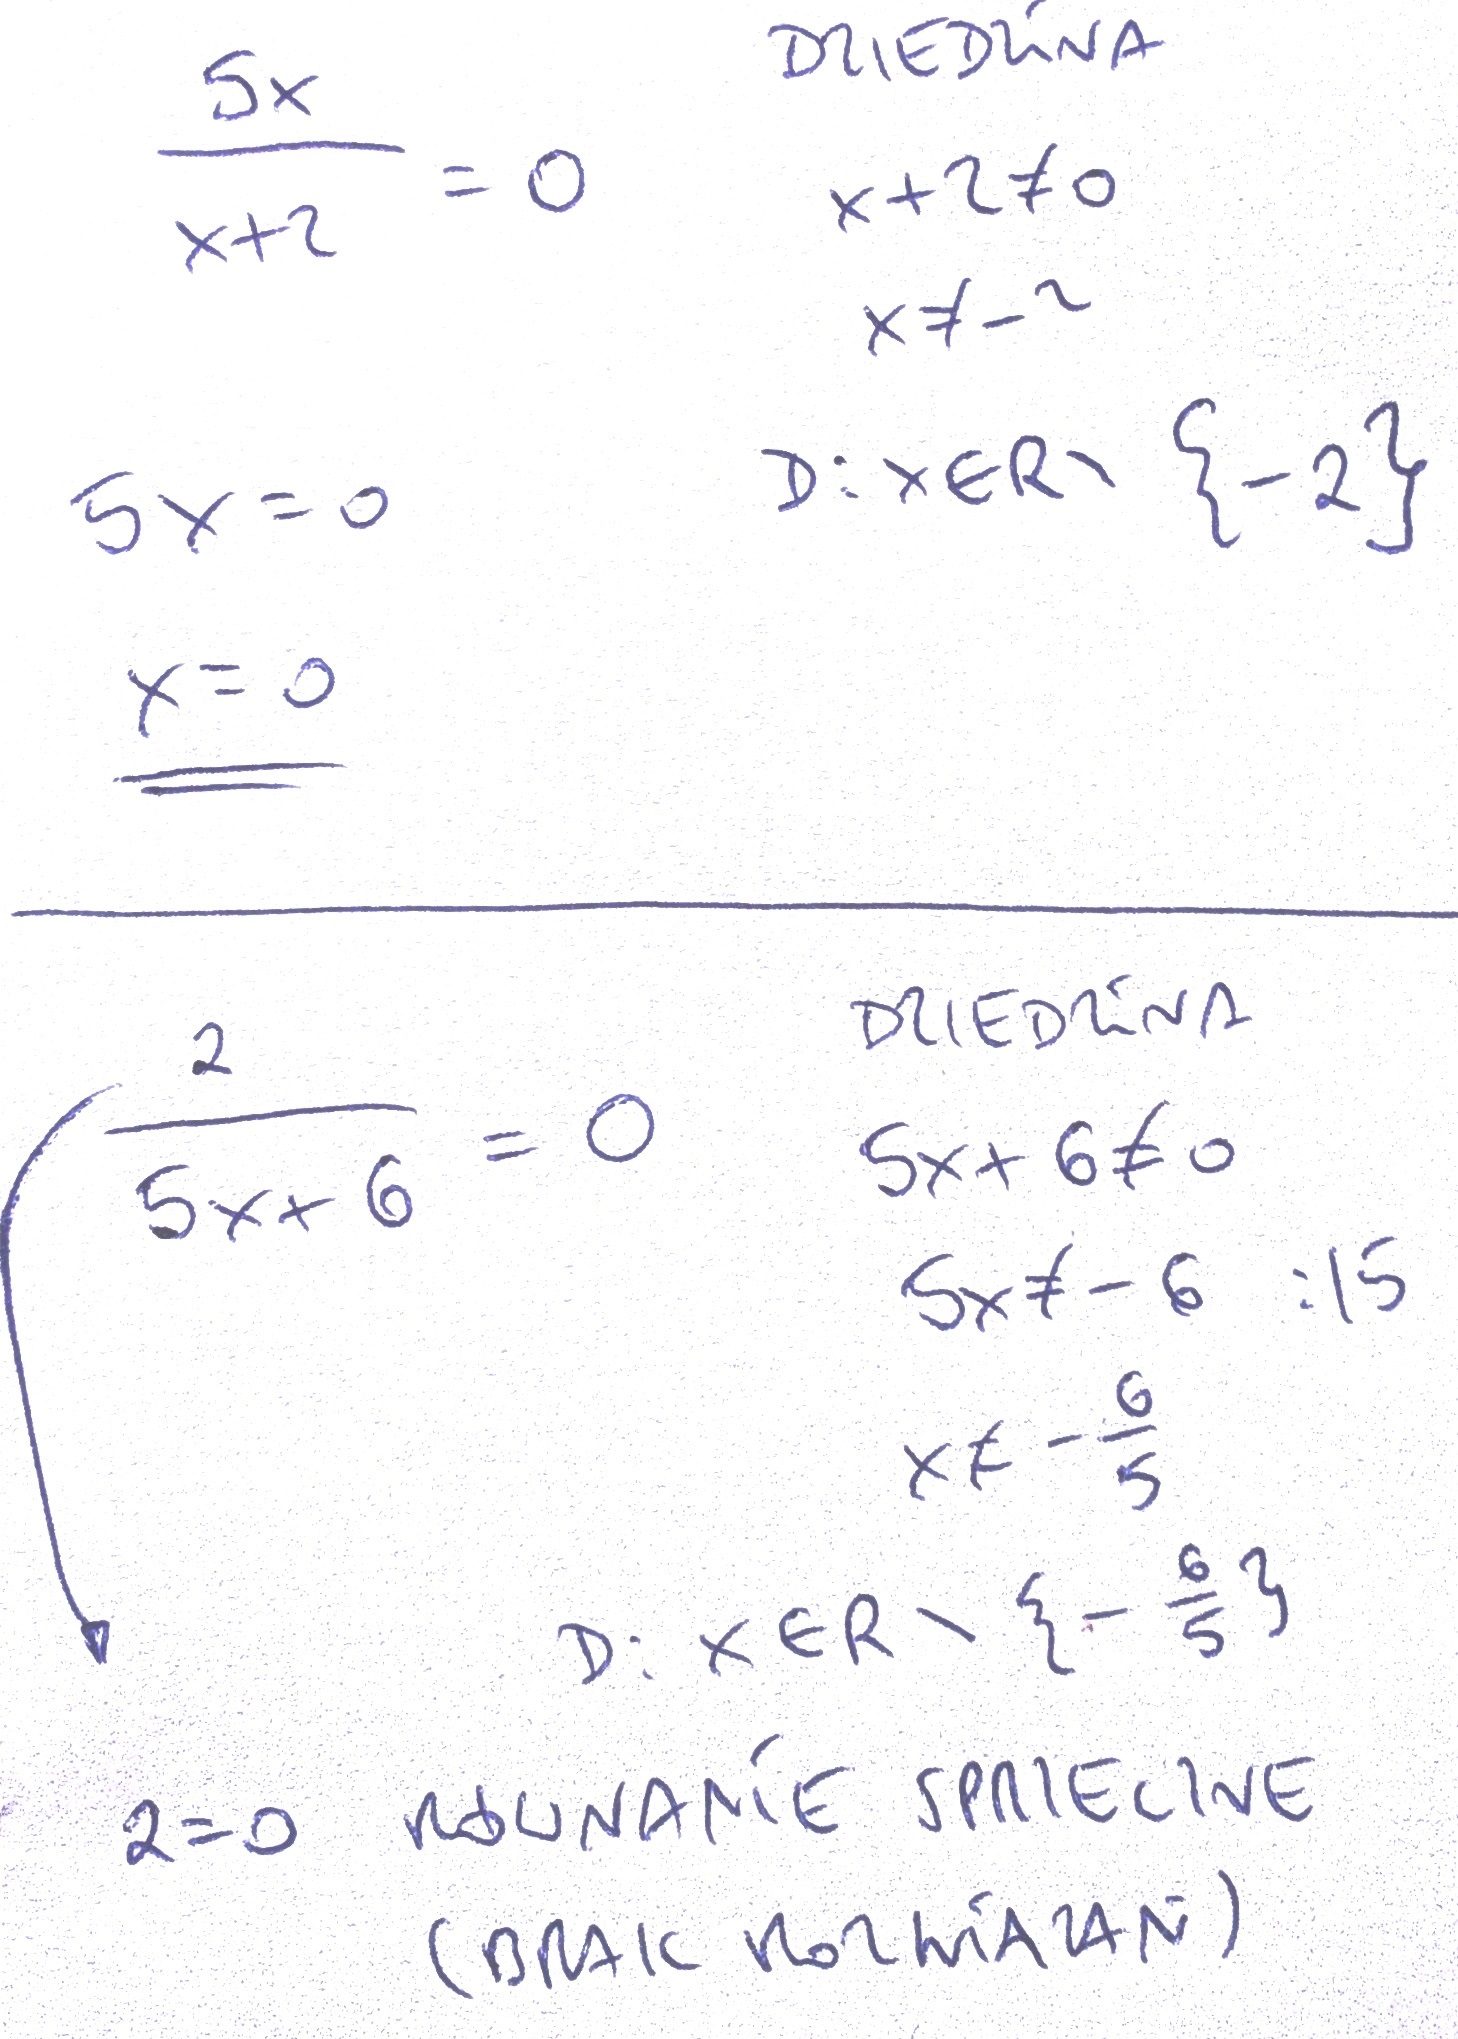 5x/(x+2) = 0
DZIEDZINA
x+2≠0
x≠-2
D: x∈R \ {-2}
5x=0
x=0
2/(5x+6) = 0
DZIEDZINA
5x+6≠0
5x≠-6 :|5
x≠ -6/5
D: x∈R \ {-6/5}
2=0 RÓWNANIE SPRZECZNE
(BRAK ROZWIAZAŃ)